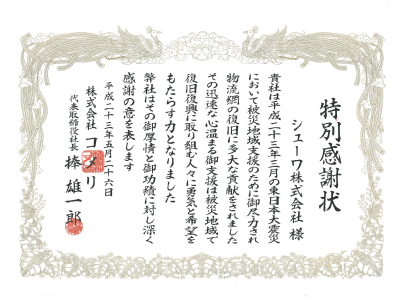 特別感謝状
シューワ株式会社 様
貴社は平成二十三年三月の東日本大震災
において被災地域支援のために御尽力され
物流網の復旧に多大な貢献をされました
その迅速な心温まる御支援は被災地域で
復旧復興に取り組む人々に勇気と希望を
もたらす力となりました
弊社はその御厚情と御功績に対し深く
感謝の意を表します
平成二十三年五月二十六日
株式会社 コメリ
代表取締役社長 捧 雄一郎